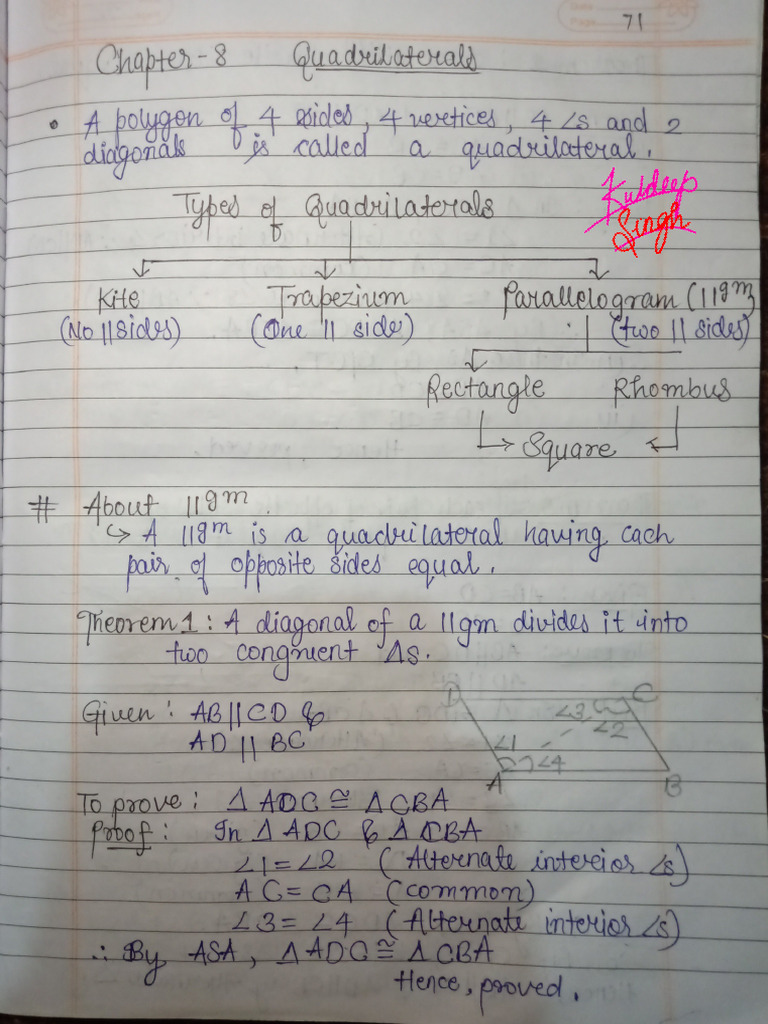 71
Chapter-8 Quadrilaterals
• A polygon of 4 sides, 4 vertices, 4 ∠s and 2
diagonals is called a quadrilateral.
Kuldeep
Singh
Types of Quadrilaterals
Kite Trapezium Parallelogram (11gm)
(No || sides) (One || side) (two || sides)
Rectangle Rhombus
Square
# About 11gm.
↳ A 11gm is a quadrilateral having each
pair of opposite sides equal.
Theorem 1: A diagonal of a 11gm divides it into
two congruent Δs.
Given: AB || CD &
AD || BC
D C
∠3
∠2
∠1
∠4
A B
To prove: Δ ADC ≅ Δ CBA
Proof: In Δ ADC & Δ CBA
∠1 = ∠2 (Alternate intereior ∠s)
AC = CA (common)
∠3 = ∠4 (Alternate interior ∠s)
∴ By ASA, Δ ADC ≅ Δ CBA
Hence, proved.